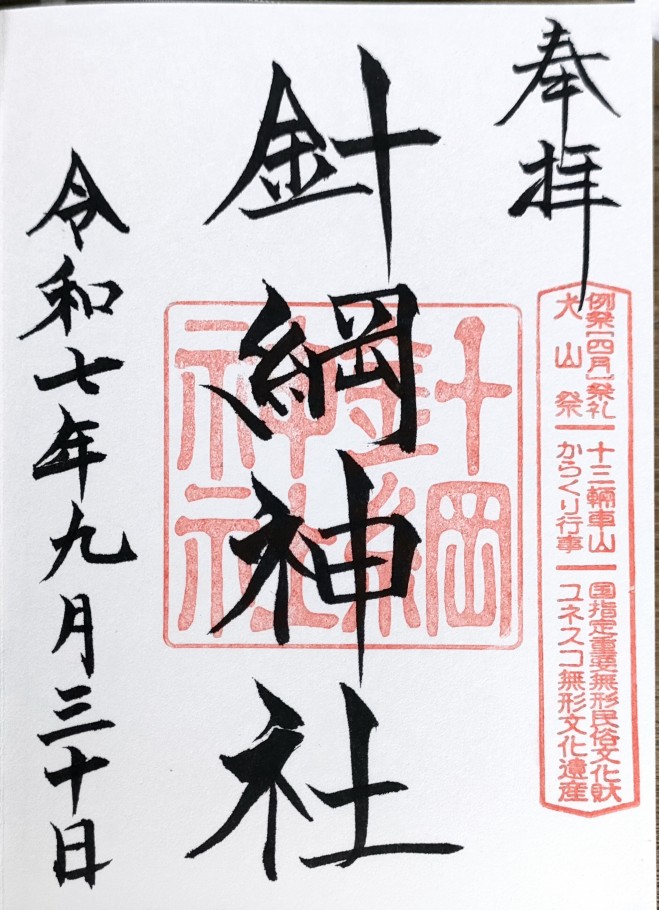 奉拝
例祭[四月]祭礼
犬山祭
十三輛車山
からくり行事
国指定重要無形民俗文化財
ユネスコ無形文化遺産
針綱神社
針綱
神社
令和七年九月三十日